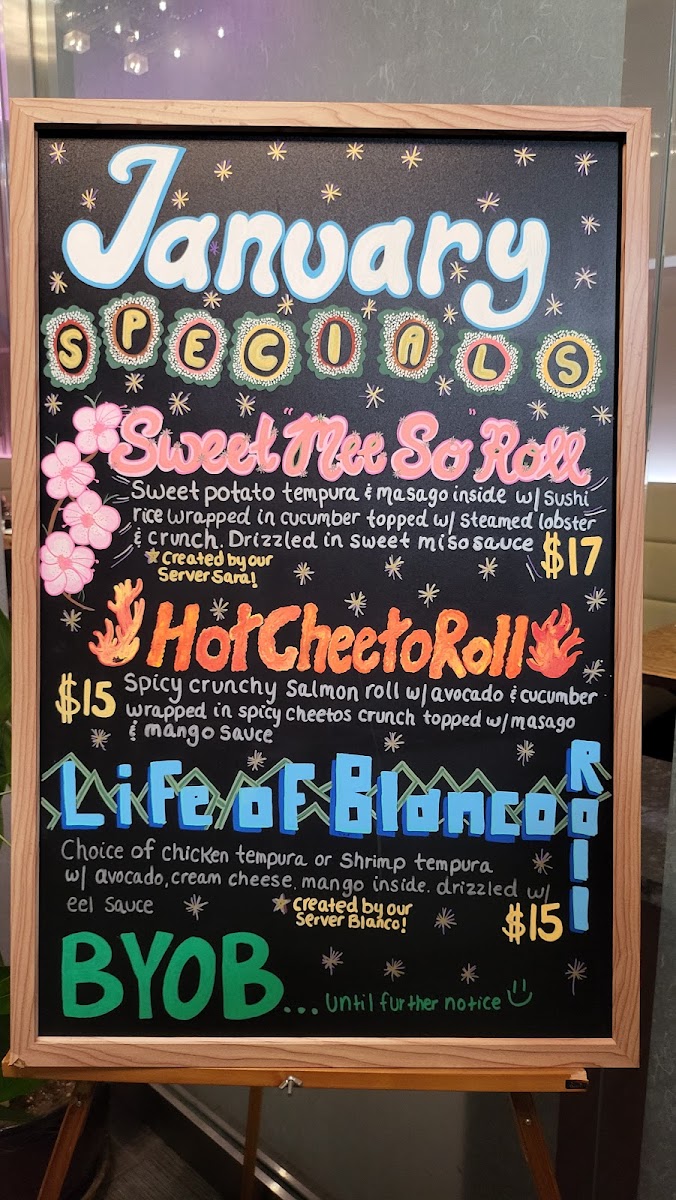 January
SPECIALS
Sweet "Mee So" Roll
Sweet potato tempura & masago inside w/ sushi
rice wrapped in cucumber topped w/ steamed lobster
& crunch. Drizzled in sweet miso sauce $17
★ Created by our
Server Sara!
Hot Cheeto Roll
$15 Spicy crunchy salmon roll w/ avocado & cucumber
wrapped in spicy cheetos crunch topped w/ masago
& mango sauce
Life of Blanco Roll
Choice of chicken tempura or shrimp tempura
w/ avocado, cream cheese, mango inside. drizzled w/
eel sauce
★ created by our
Server Blanco!
$15
BYOB... until further notice